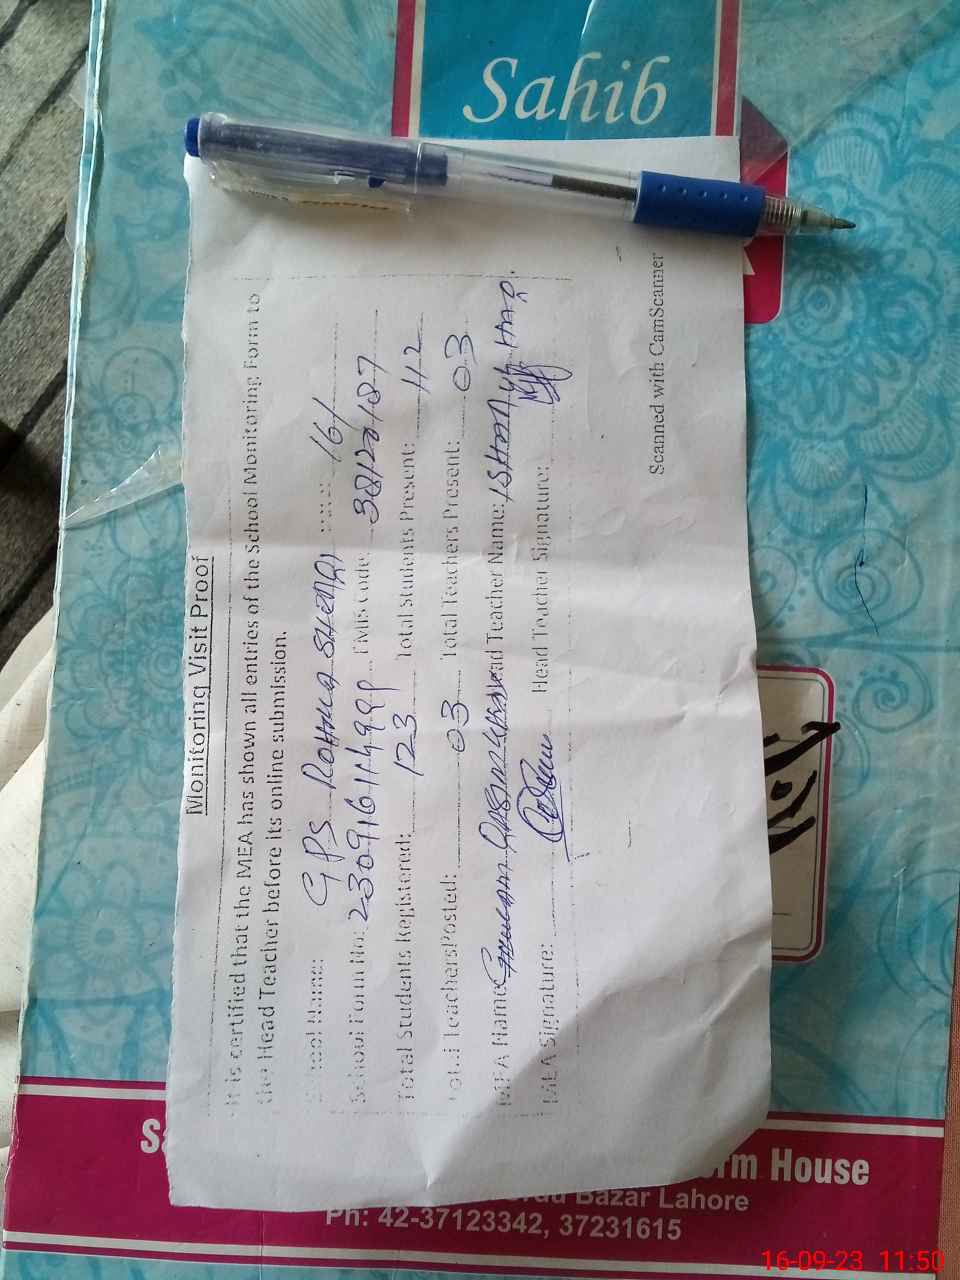 Sahib
Monitoring Visit Proof
It is certified that the MEA has shown all entries of the School Monitoring Form to
the Head Teacher before its online submission.
School Name: GPS 161
School Form No: EMIS Code 38120187
Total Students Registered: 123 Total Students Present: 112
Total TeachersPosted: 03 Total Teachers Present: 03
MEA Name: Head Teacher Name:
MEA Signature: Head Teacher Signature:
Scanned with CamScanner
rm House
Bazar Lahore
Ph: 42-37123342, 37231615
16-09-23 11:50